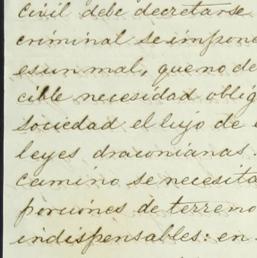 civil debe decretarse
criminal se impone
es un mal, que no de
cible necesidad oblig
sociedad el lujo de
leyes draconianas.
camino se necesita
porciones de terreno
indispensables: en